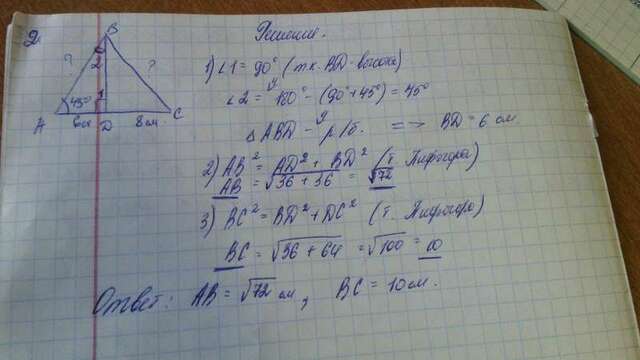 2.
Решение.
B
2
?
?
1
45°
A
6см
D
8см.
C
1) ∠1 = 90° (т.к. BD - высота)
∠2 = 180° - (90° + 45°) = 45°
△ ABD - р/б. => BD = 6 см
2) AB² = AD² + BD² (т. Пифагора)
AB = √36 + 36 = √72
3) BC² = BD² + DC² (т. Пифагора)
BC = √36 + 64 = √100 = 10
Ответ: AB = √72 см, BC = 10 см.